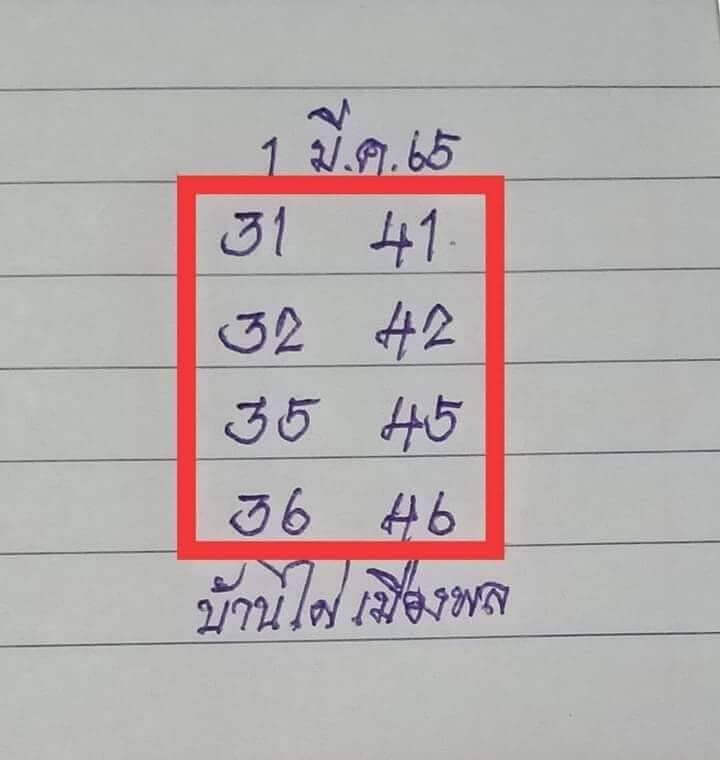 1 มี.ค.65
31 41
32 42
35 45
36 46
บ้านไผ่ เมืองพล